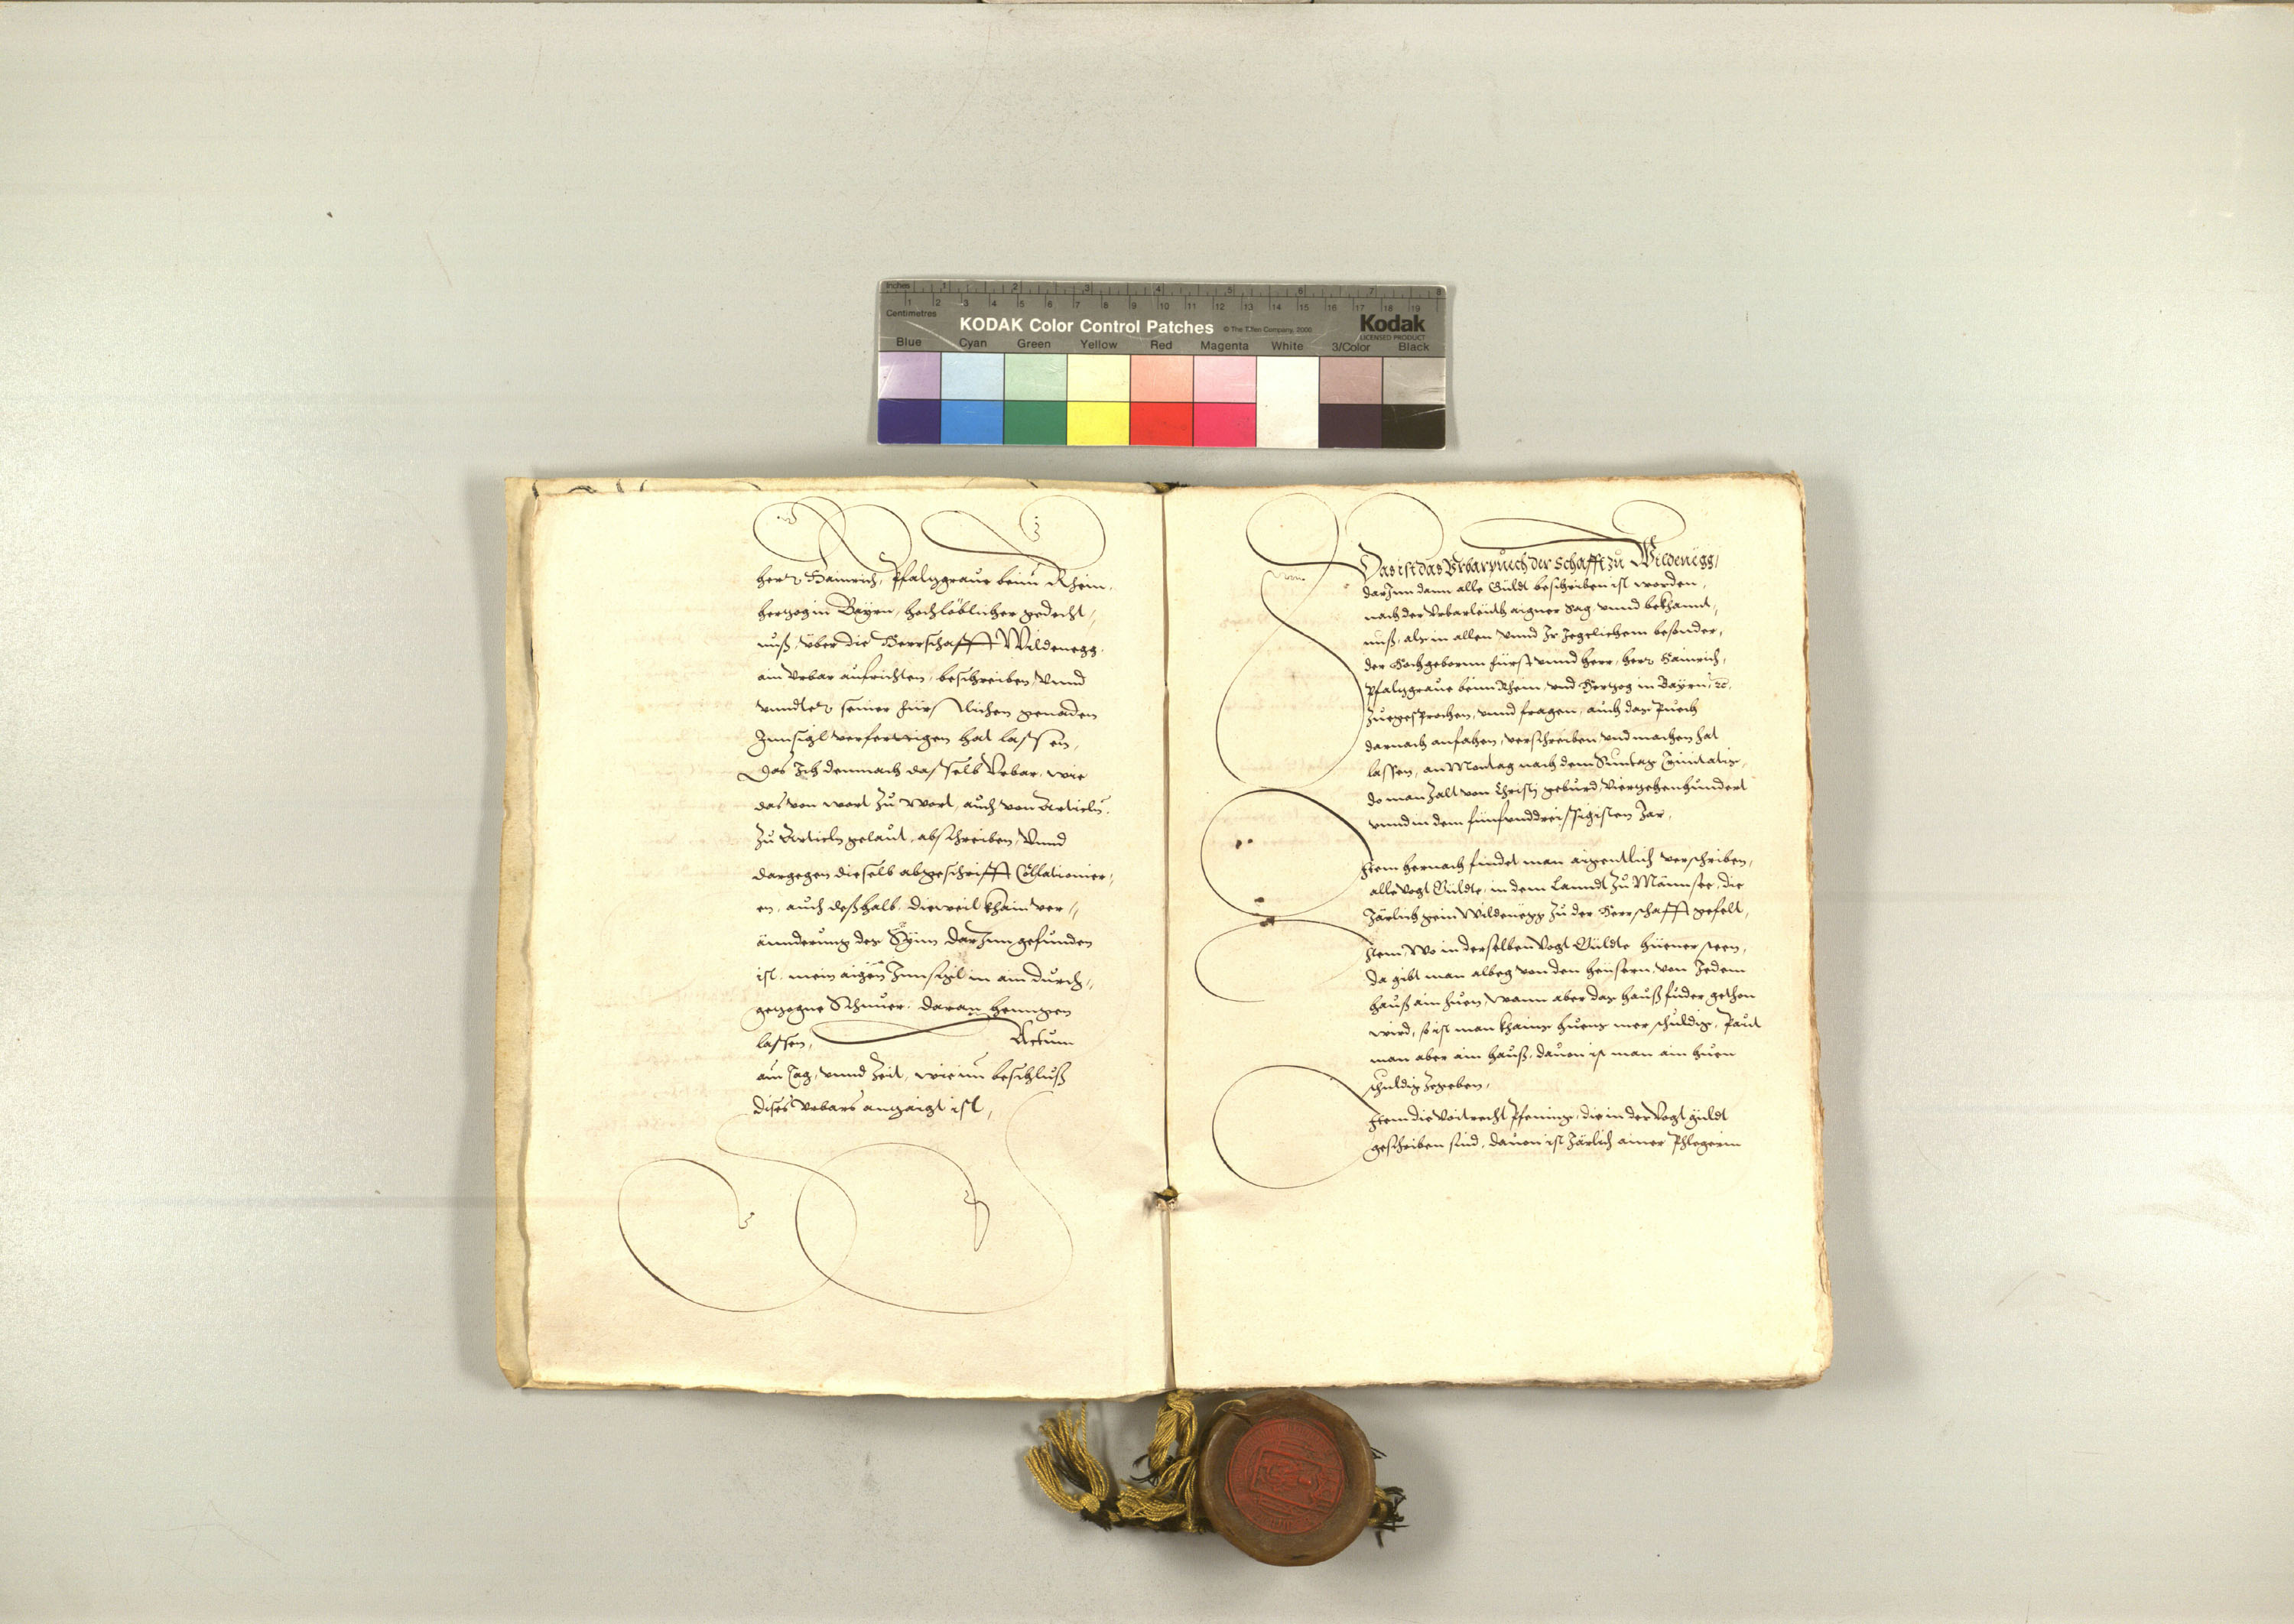 Inches 1 2 3 4 5 6 7 8
Centimetres 1 2 3 4 5 6 7 8 9 10 11 12 13 14 15 16 17 18 19
KODAK Color Control Patches © The Tiffen Company, 2000 Kodak
LICENSED PRODUCT
Blue Cyan Green Yellow Red Magenta White 3/Color Black
herr Hainrich, Pfalzgraue beim Rhein,
herzog in Bayrn, hochlöblicher gedecht,
nuß, über die Herrschafft Wildenegg
ain Vrbar aufrichten, beschreiben, vnnd
vnndter seiner fürstlichen genaden
Innsigl verferttigen hat lassen,
Das Ich demnach dasselb Vrbar, wie
das von wort zu wort, auch von Articln,
zu Articln gelaut, abschreiben, Vnnd
dargegen dieselb abgeschrifft Collationier,
en, auch deßhalb, dieweil khain ver,,
ännderung des Synn darInn gefunden
ist, mein aigen Innsigl in ain durch,,
gezogne Schnuer, daran henngen
lassen, Actum
am Tag, vnnd Zeit, wie im beschluß
dises Vrbars angezaigt ist,
Das ist das Vrbarpuech der Schafft zu Wildenegg,
darInn dann alle Güldt beschriben ist worden,
nach der Vrbarleuth aigner Sag, vnnd bekhannt,
nuß, als in allen vnnd Ir Jegelichem besonder,
der Hochgeborun fürst vnnd herr, herr Hainrich,
Pfalzgraue beim Rhein, vnd Herzog in Bayrn, ꝛc.
Zuegesprochen, vnnd fragen, auch das Puech
darnach anfahen, verschreiben vnd machen hat
lassen, an Montag nach dem Suntag Trinitatis,
do man Zalt von Christi geburd, Vierzehenhundert
vnnd in dem fünfunddreissigisten Jar,
Item hernach findet man aigentlich verschriben,
alle Vogt Güldte, in dem Lanndt zu Männsee, die
Järlich gein Wildenegg zu der Herrschafft gefelt,
Item, Wo in derselben Vogt Güldte hüener steen,
da gibt man albeg von den heüsern, von Jedem
hauß ain huen, wann aber das hauß fuder gethon
wird, so ist man khains huens mer schuldig, Paut
man aber ain hauß, dauon ist man ain huen
schuldig Zegeben,
Item die Voitrecht Pfening, die in der Vogt güldt
geschriben sind, dauon ist Järlich ainer Phlegerin